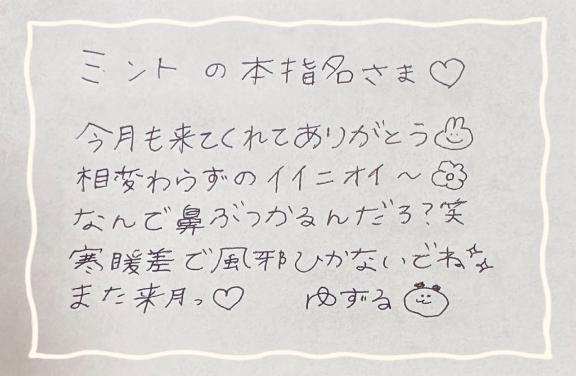 ミントの本指名さま♡
今月も来てくれてありがとう
相変わらずのイイニオイ～
なんで鼻ぶつかるんだろ?笑
寒暖差で風邪ひかないでね
また来月っ♡ ゆずる